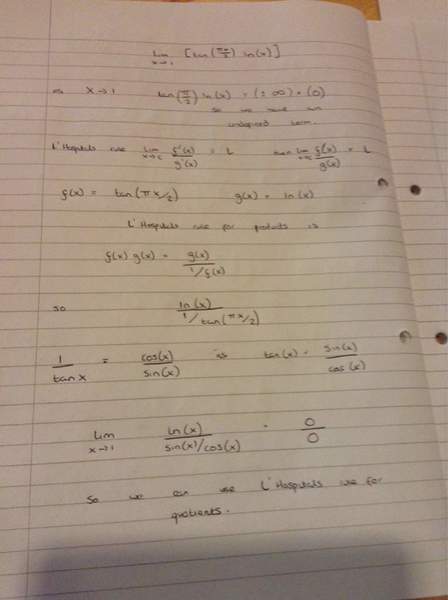 lim x→1 [tan(πx/2) ln(x)]
as x→1 tan(π/2) ln(x) = (±∞) × (0)
so we have an
undefined term.
L'Hospitals rule lim x→c f'(x)/g'(x) = L then lim x→c f(x)/g(x) = L
f(x) = tan(πx/2) g(x) = ln(x)
L'Hospitals rule for products is
f(x) g(x) = g(x)/1/f(x)
so ln(x)/1/tan(πx/2)
1/tanx = cos(x)/sin(x) as tan(x) = sin(x)/cos(x)
lim x→1 ln(x)/sin(x)/cos(x) = 0/0
So we can use L'Hospitals rule for
quotients.